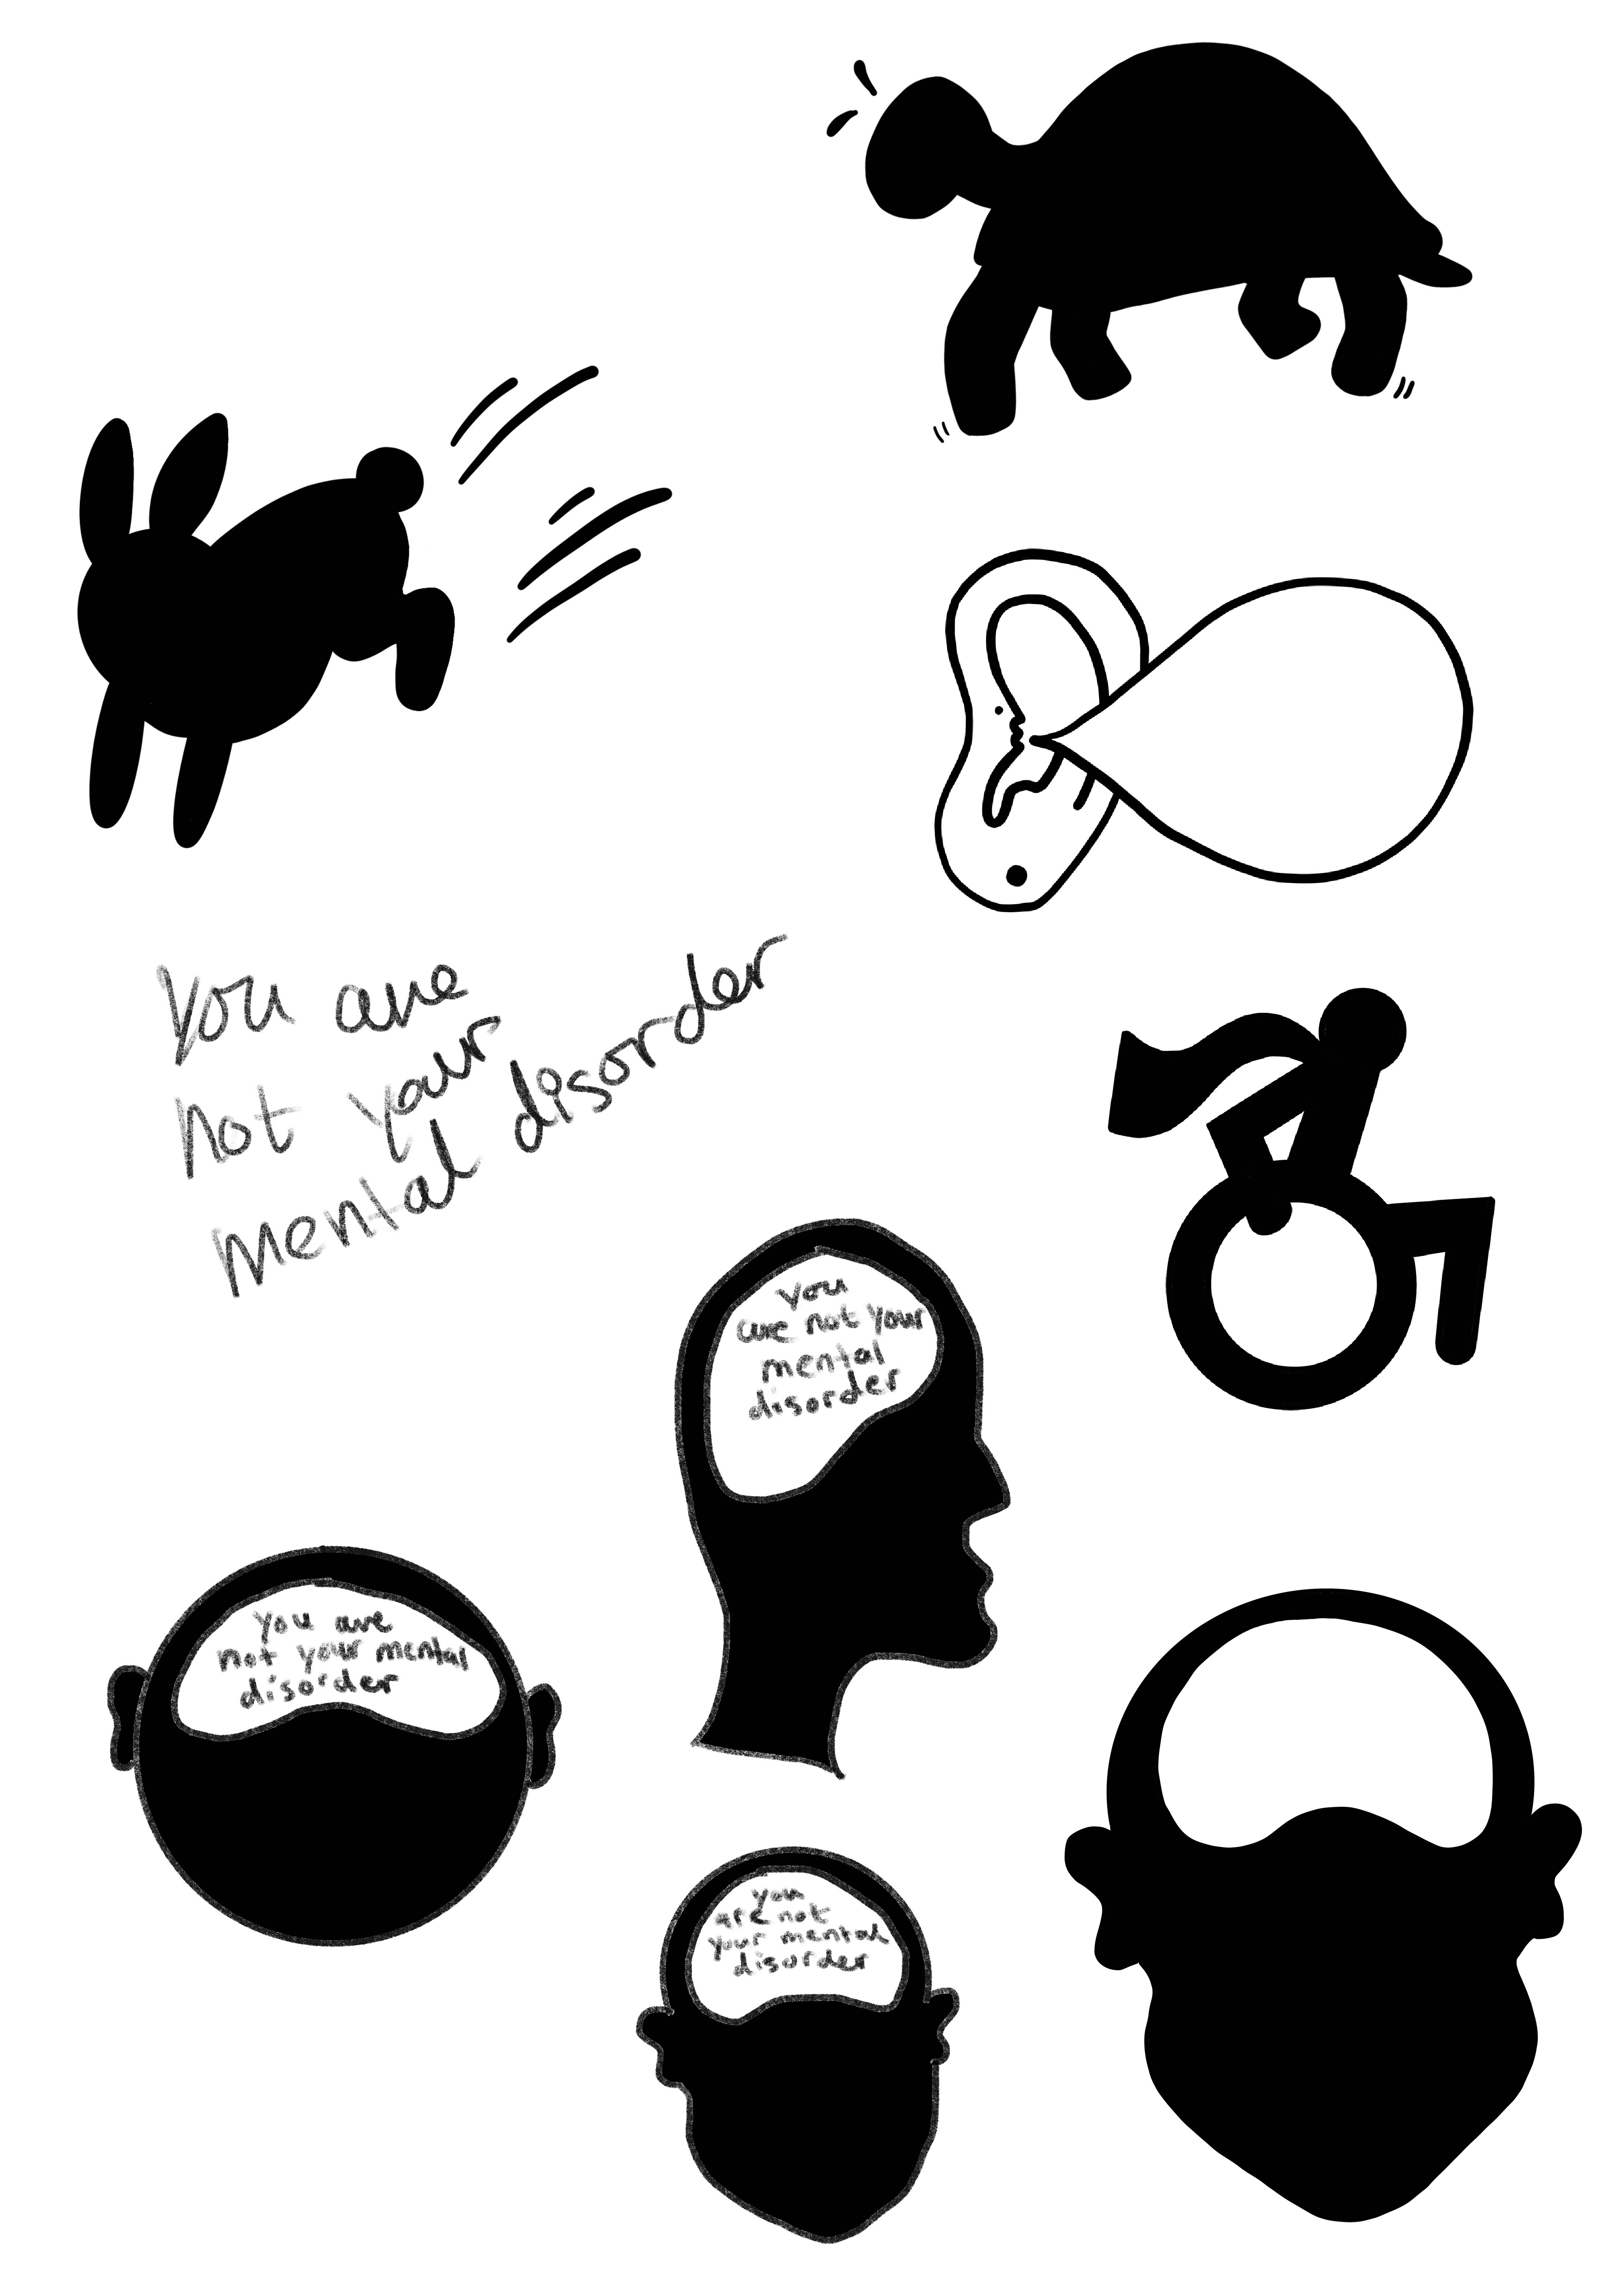 you are
not your
mental disorder
you
are not your
mental
disorder
you are
not your mental
disorder
you
are not
your mental
disorder